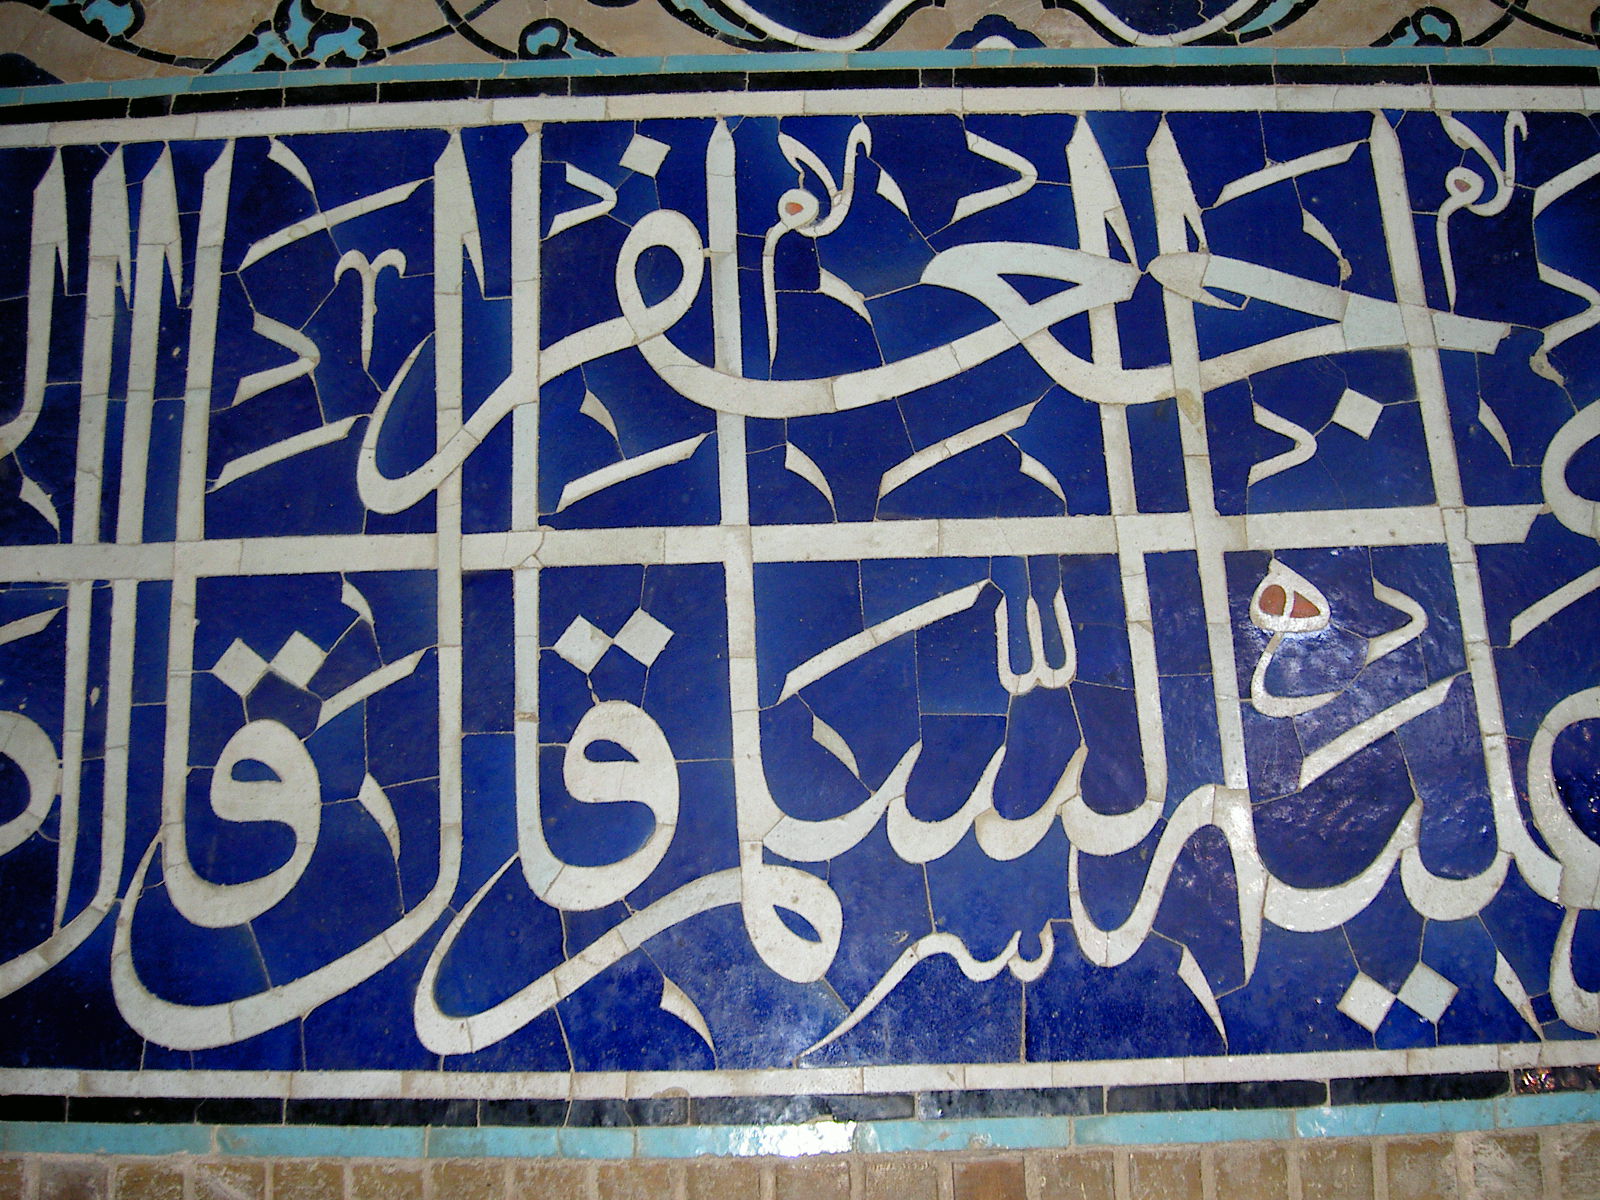 جعفر
عليه السلام قال قال